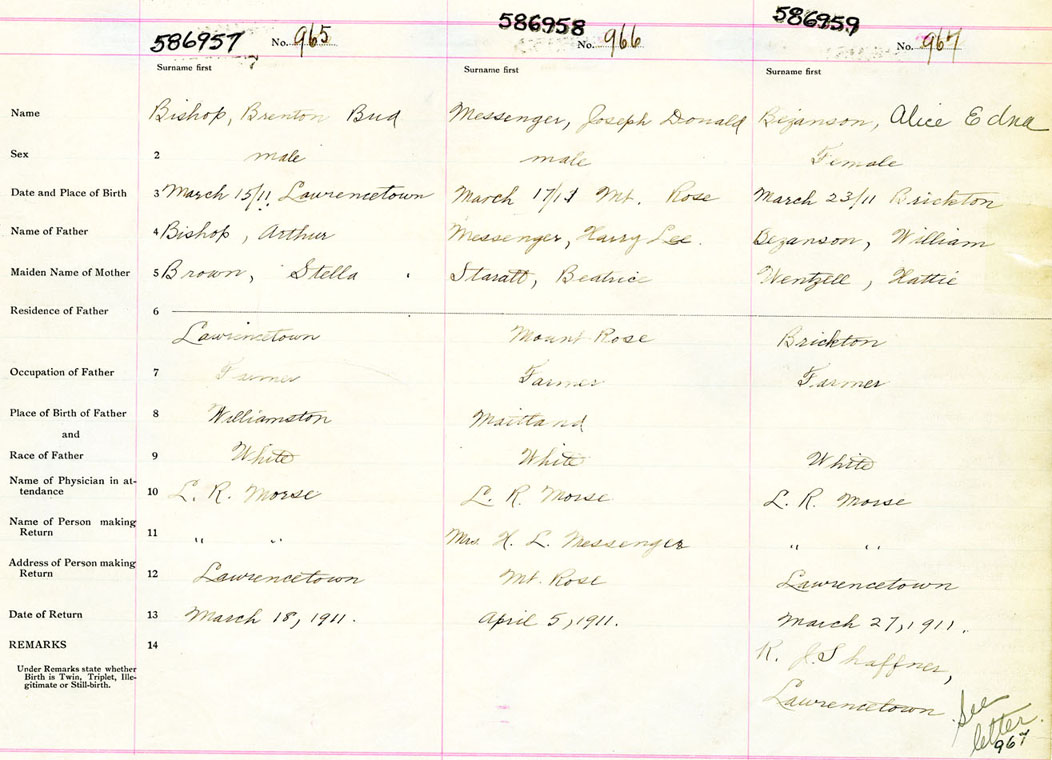 586957 No. 965
586958 No. 966
586959 No. 967
Surname first Surname first Surname first
Name Bishop, Brenton Bud Messenger, Joseph Donald Bezanson, Alice Edna
Sex 2 male male Female
Date and Place of Birth 3 March 15/11 Lawrencetown March 17/11 Mt. Rose March 23/11 Brickton
Name of Father 4 Bishop, Arthur Messenger, Harry Lee. Bezanson, William
Maiden Name of Mother 5 Brown, Stella Staratt, Beatrice Wentzell, Hattie
Residence of Father 6
Lawrencetown Mount Rose Brickton
Occupation of Father 7 Farmer Farmer Farmer
Place of Birth of Father 8 Williamston Maitland
and
Race of Father 9 White White White
Name of Physician in at-
tendance 10 L. R. Morse L. R. Morse L. R. Morse
Name of Person making
Return 11 " " Mrs. H. L. Messenger " "
Address of Person making
Return 12 Lawrencetown Mt. Rose Lawrencetown
Date of Return 13 March 18, 1911. April 5, 1911. March 27, 1911.
REMARKS 14
R. J. Shaffner,
Lawrencetown
Under Remarks state whether
Birth is Twin, Triplet, Ille-
gitimate or Still-birth.
See
letter.
967